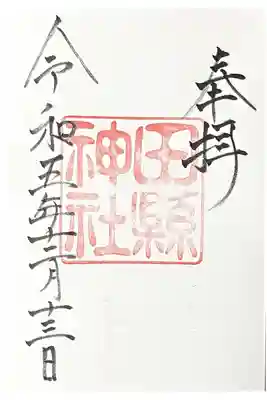 奉拝
田縣神社
令和五年十二月十三日